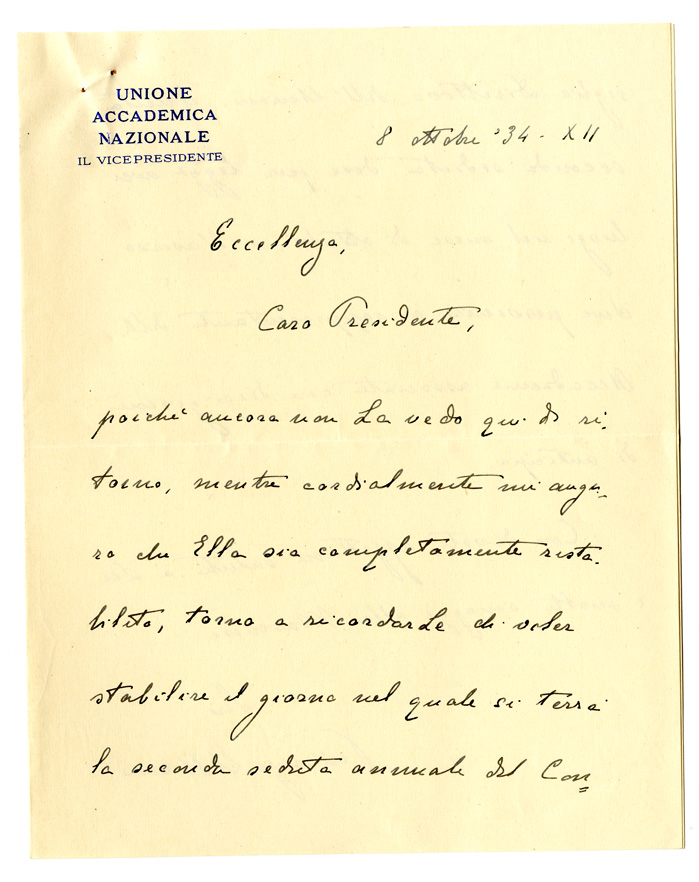 UNIONE
ACCADEMICA
NAZIONALE
IL VICEPRESIDENTE
8 ottobre '34 - XII
Eccellenza,
Caro Presidente,
poichè ancora non La vedo qui di ri-
torno, mentre cordialmente mi augu-
ro che Ella sia completamente rista-
bilito, torno a ricordarLe di voler
stabilire il giorno nel quale si terrà
la seconda seduta annuale del Con=